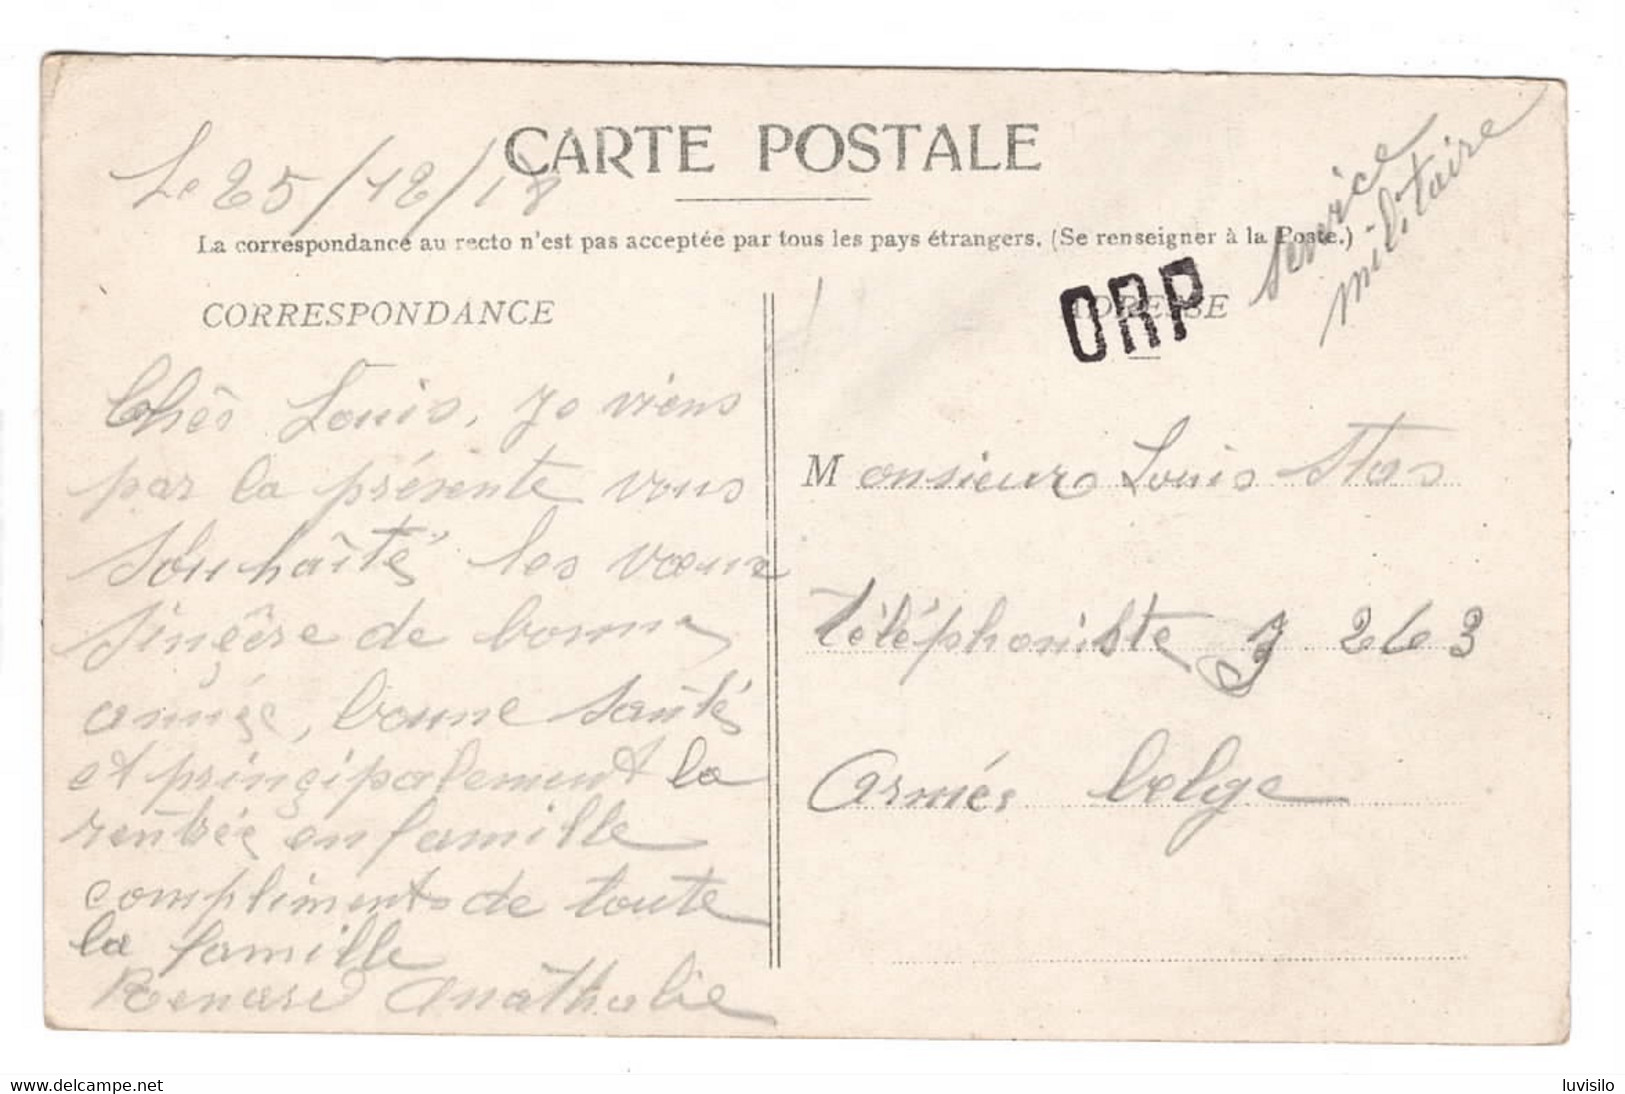 CARTE POSTALE
Le 25/12/18
La correspondance au recto n'est pas acceptée par tous les pays étrangers. (Se renseigner à la Poste.)
service
militaire
CORRESPONDANCE
ADRESSE
ORP
Chès Louis, Je viens
par la présente vous
souhaîté les vœux
sinçère de bonne
année, bonne santés
et prinçipalement la
rentrée en famille
compliments de toute
la famille
Renard Anathalie
Monsieur Louis Stas
Téléphoniste J 263
Armés belge
www.delcampe.net
luvisilo